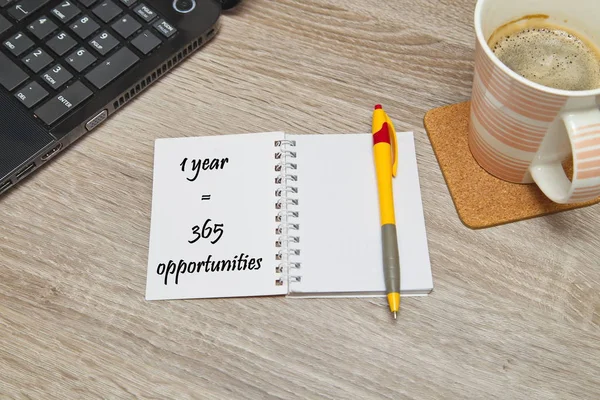 1 year
=
365
opportunities